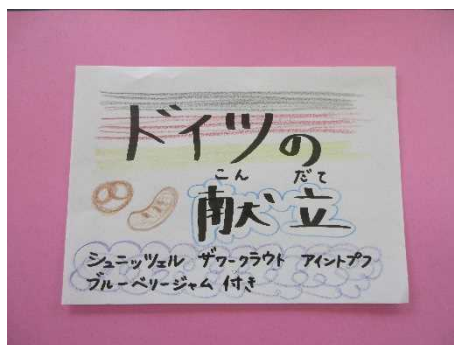 ドイツの
こん だて
献立
シュニッツェル ザワークラウト アイントプフ
ブルーベリージャム 付き